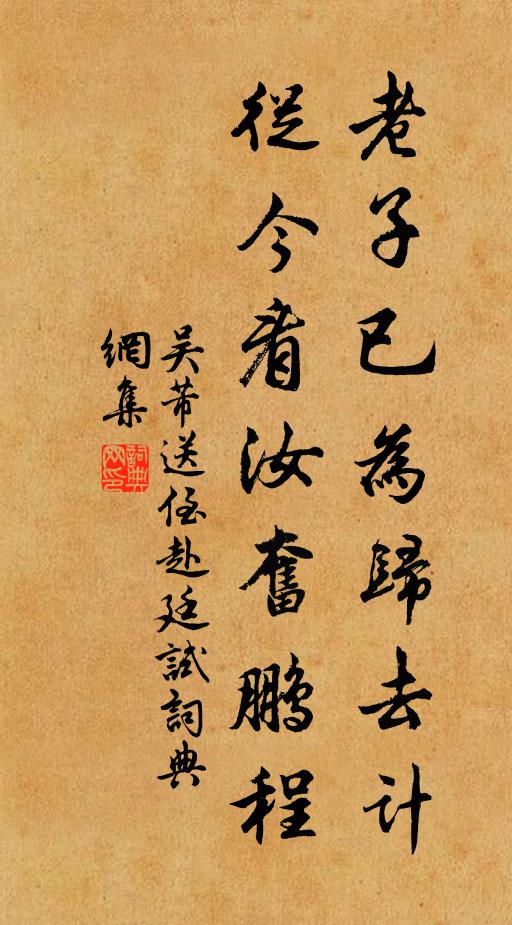 老子已為歸去計
從今看汝奮鵬程
吳芾送侄赴廷試詞典
網集
詞典
网印